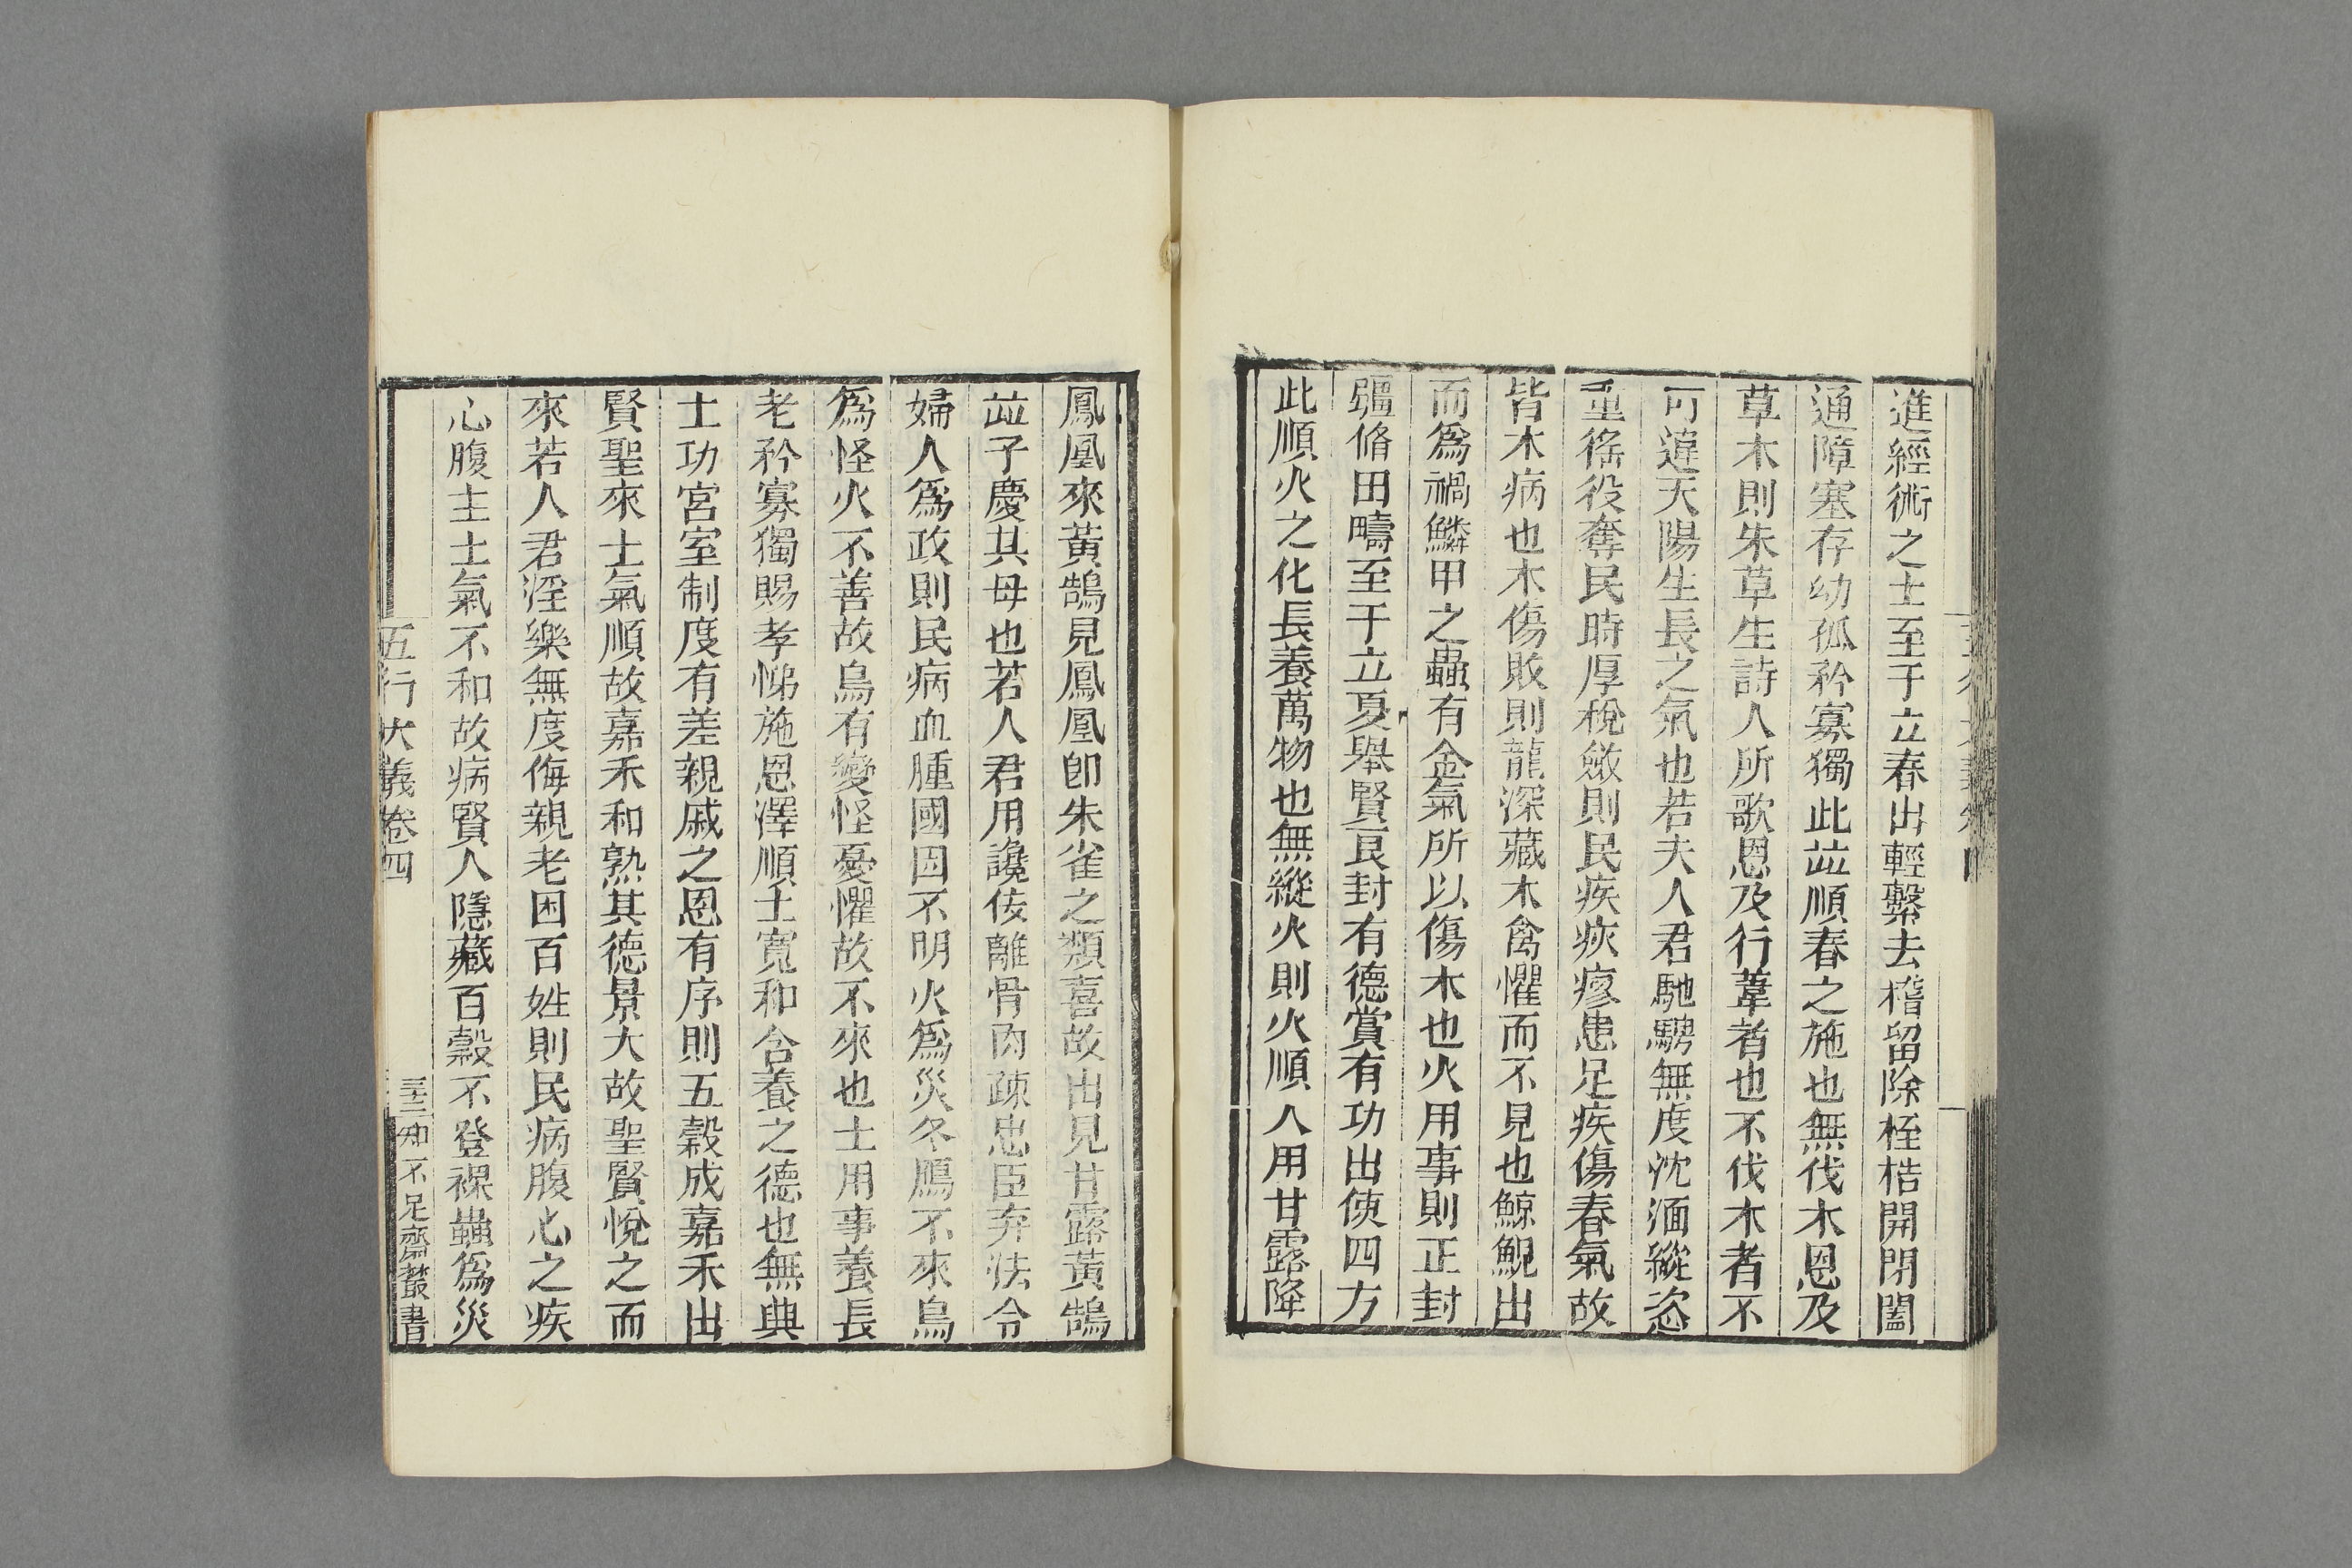 進經術之士至于立春出輕繫去稽留除桎梏開閉闔
通障塞存幼孤矜寡獨此竝順春之施也無伐木恩及
草木則朱草生詩人所歌恩及行葦者也不伐木者不
可違天陽生長之氣也若夫人君馳騁無度沈湎縱恣
重徭役奪民時厚稅斂則民疾疢瘳患足疾傷春氣故
皆木病也木傷敗則龍深藏木禽懼而不見也鯨鯢出
而爲禍鱗甲之蟲有金氣所以傷木也火用事則正封
疆脩田疇至于立夏舉賢良封有德賞有功出使四方
此順火之化長養萬物也無縱火則火順人用甘露降
鳳凰來黃鵠見鳳凰卽朱雀之類喜故出見甘露黃鵠
竝子慶其母也若人君用讒佞離骨肉疎忠臣弃法令
婦人爲政則民病血腫國因不明火爲災冬鴈不來鳥
爲怪火不善故鳥有變怪憂懼故不來也土用事養長
老矜寡獨賜孝悌施恩澤順土寬和含養之德也無興
土功宮室制度有差親戚之恩有序則五穀成嘉禾出
賢聖來土氣順故嘉禾和熟其德景大故聖賢悅之而
來若人君淫樂無度侮親老困百姓則民病腹心之疾
心腹主土氣不和故病賢人隱藏百穀不登裸蟲爲災
五行大義卷四
三十二 知不足齋叢書